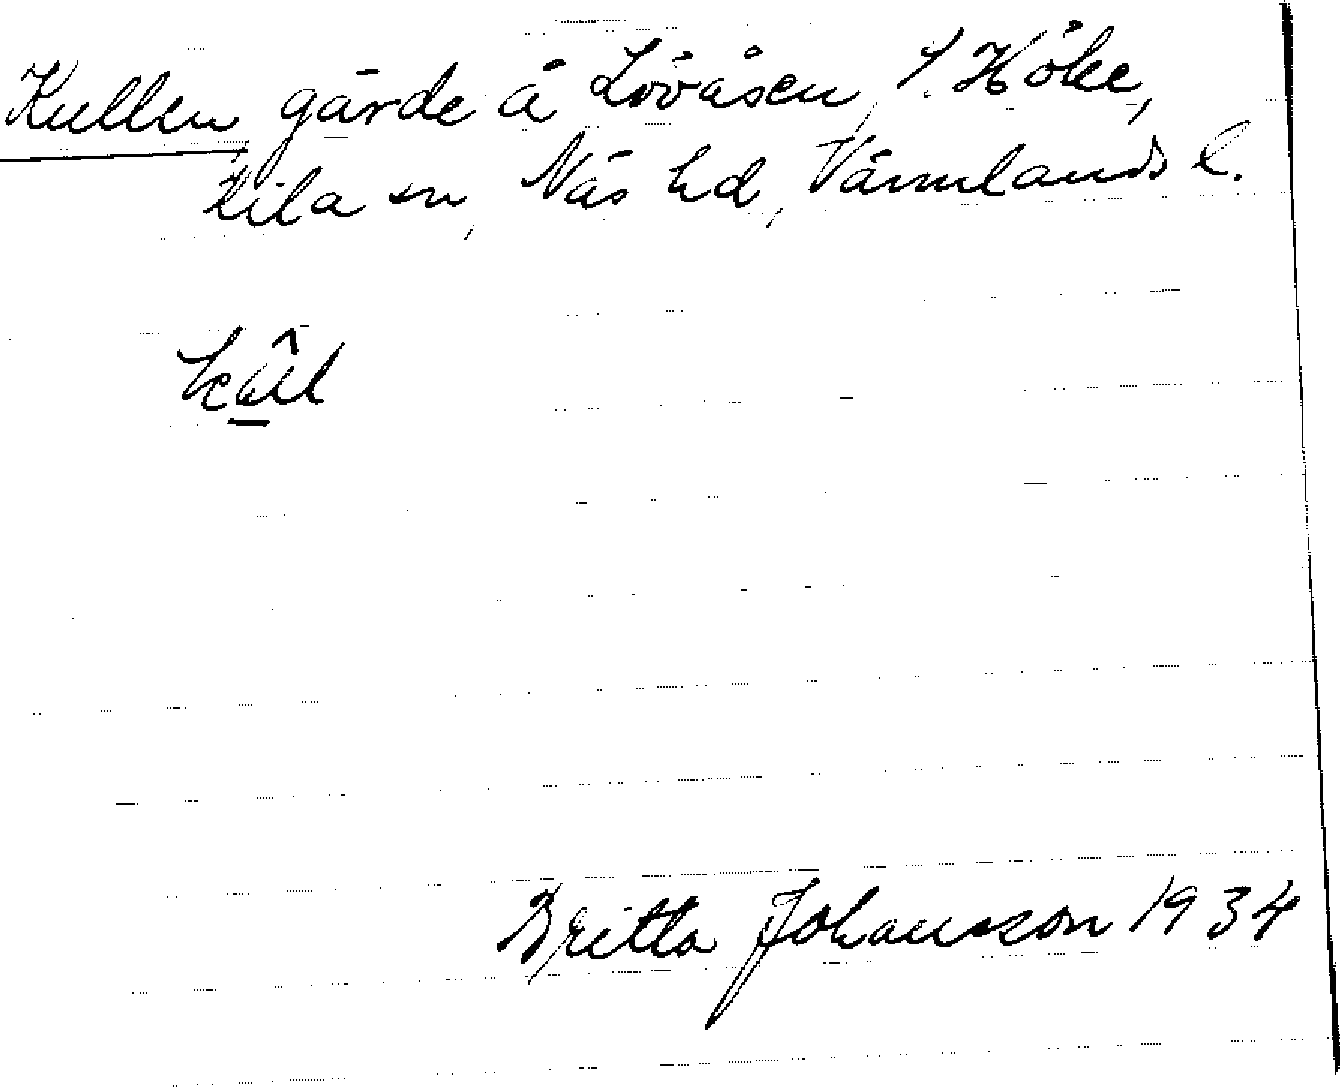 Kullen gärde å Lövåsen, S. Höke,
Kila sn, Näs hd, Värmlands l.
Britta Johansson 1934